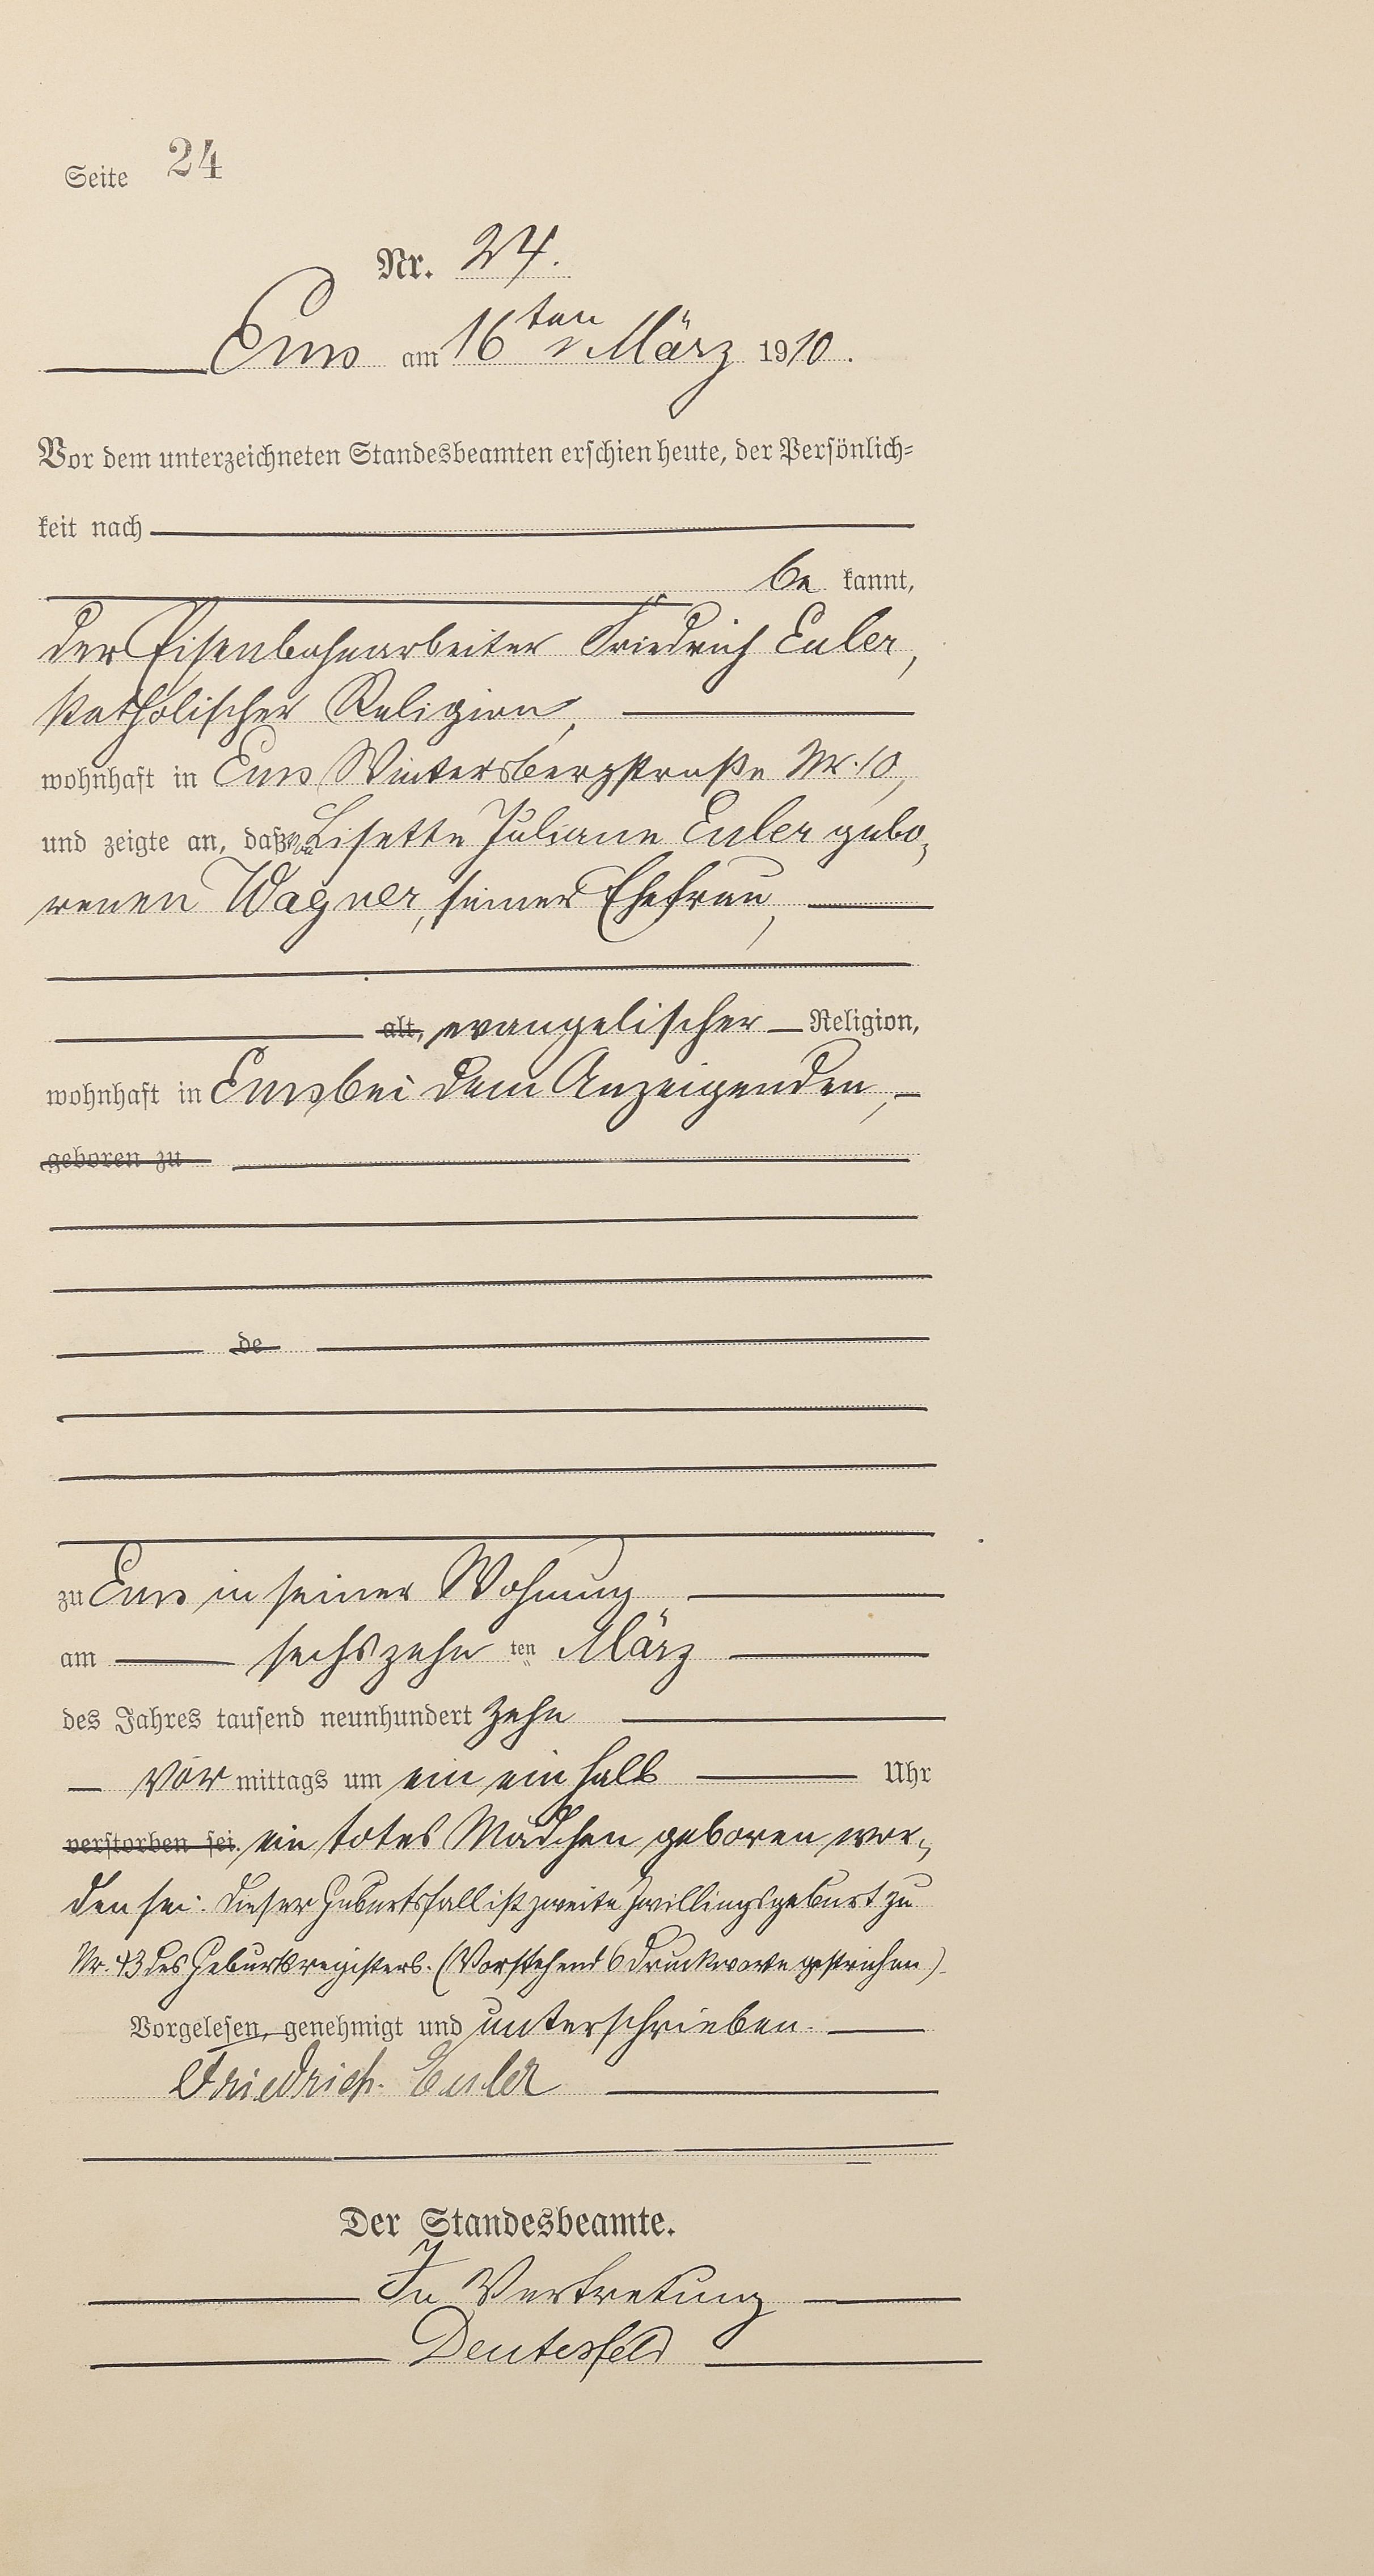 Seite 24
Nr. 24.
Ems am 16ten März 1910.
Vor dem unterzeichneten Standesbeamten erschien heute, der Persönlich-
keit nach
be kannt,
der Eisenbahnarbeiter Friedrich Euler,
katholischer Religion,
wohnhaft in Ems, Wintersbergstraße Nr. 10,
und zeigte an, daß von Lisette Juliane Euler gebo-
renen Wagner, seiner Ehefrau,
alt, evangelischer Religion,
wohnhaft in Ems bei dem Anzeigenden,
geboren zu
de
zu Ems in seiner Wohnung
am sechszehn ten März
des Jahres tausend neunhundert zehn
Vor mittags um ein ein halb Uhr
verstorben sei. ein totes Mädchen geboren wor-
den sei. Dieser Geburtsfall ist zweite Zwillingsgeburt zu
Nr. 43 des Geburtsregisters. (Vorstehend 6 Druckworte gestrichen).
Vorgelesen, genehmigt und unterschrieben.
Friedrich Euler
Der Standesbeamte.
In Vertretung
Deutesfeld